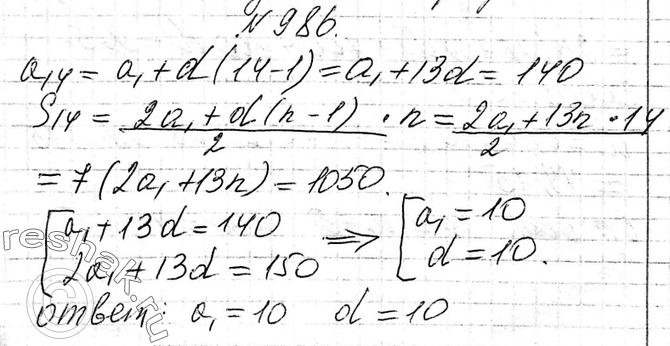 №986.
a₁₄ = a₁ + d(14-1) = a₁ + 13d = 140
S₁₄ = \frac{2a₁ + d(n-1)}{2} · n = \frac{2a₁ + 13n · 14}{2}
= 7(2a₁ + 13n) = 1050.
[a₁ + 13d = 140 ⟹ [a₁ = 10
2a₁ + 13d = 150 d = 10.
ответ: a₁ = 10 d = 10
reshak.ru